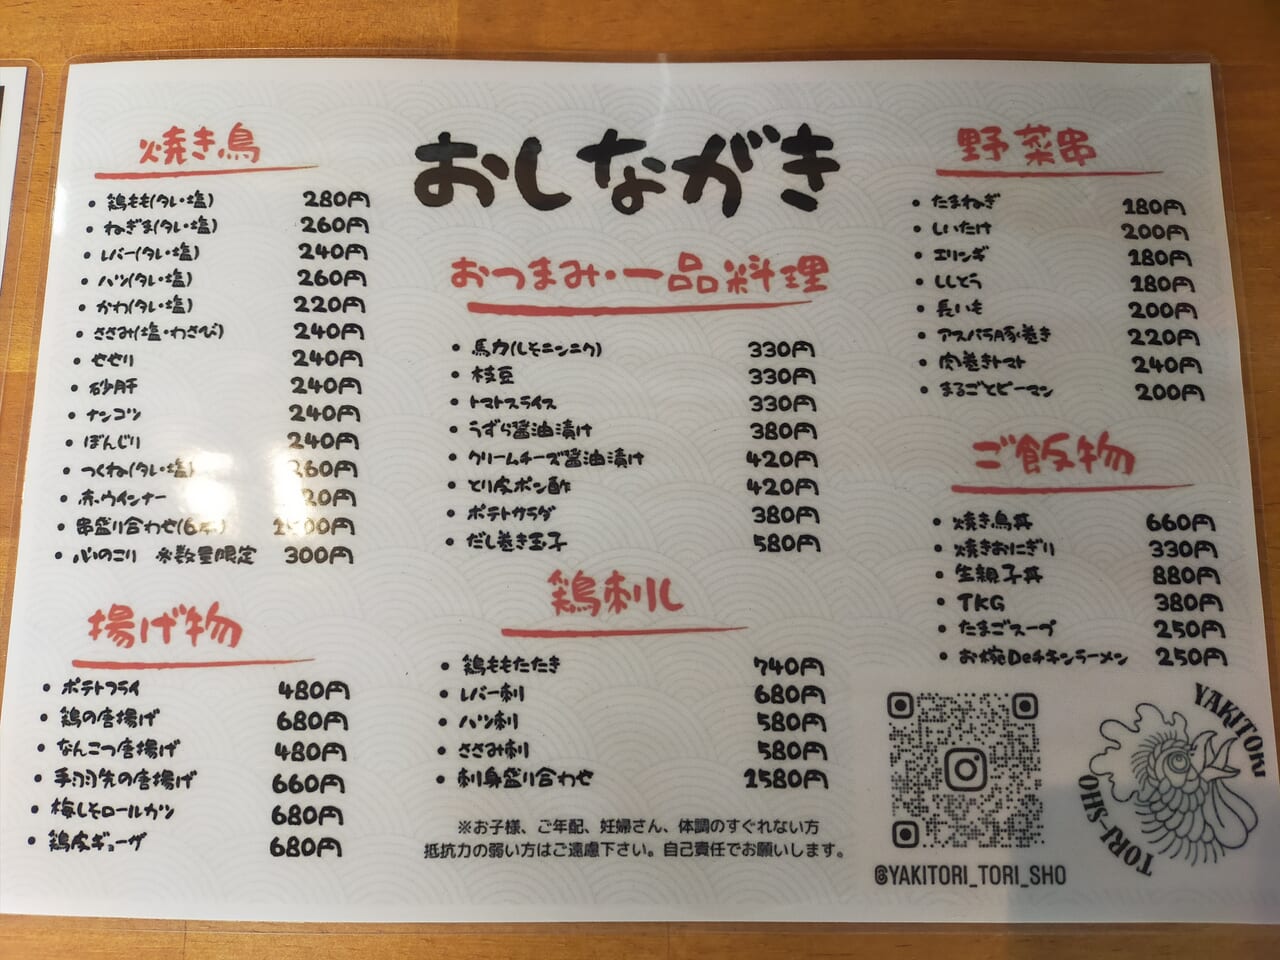 おしながき
焼き鳥
・鶏もも(タレ・塩) 280円
・ねぎま(タレ・塩) 260円
・レバー(タレ・塩) 240円
・ハツ(タレ・塩) 260円
・かわ(タレ・塩) 220円
・ささみ(塩・わさび) 240円
・せせり 240円
・砂肝 240円
・ナンコツ 240円
・ぼんじり 240円
・つくね(タレ・塩) 260円
・赤ウインナー
・串盛り合わせ(6本)
・心のこり ※数量限定 300円
揚げ物
・ポテトフライ 480円
・鶏の唐揚げ 680円
・なんこつ唐揚げ 480円
・手羽先の唐揚げ 660円
・梅しそロールカツ 680円
・鶏皮ギョーザ 680円
おつまみ・一品料理
・馬力(しそニンニク) 330円
・枝豆 330円
・トマトスライス 330円
・うずら醤油漬け 380円
・クリームチーズ醤油漬け 420円
・とり皮ポン酢 420円
・ポテトサラダ 380円
・だし巻き玉子 580円
鶏刺し
・鶏ももたたき 740円
・レバー刺 680円
・ハツ刺 580円
・ささみ刺 580円
・刺身盛り合わせ 1580円
※お子様、ご年配、妊婦さん、体調のすぐれない方
抵抗力の弱い方はご遠慮下さい。自己責任でお願いします。
野菜串
・たまねぎ 180円
・しいたけ 200円
・エリンギ 180円
・ししとう 180円
・長いも 200円
・アスパラ豚巻き 220円
・肉巻きトマト 240円
・まるごとピーマン 200円
ご飯物
・焼き鳥丼 660円
・焼きおにぎり 330円
・生親子丼 880円
・TKG 380円
・たまごスープ 250円
・お椀Deチキンラーメン 250円
@YAKITORI_TORI_SHO
YAKITORI
TORI-SHO